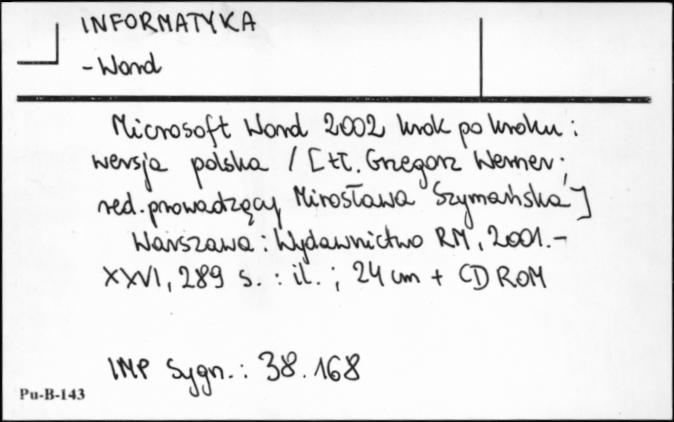 INFORMATYKA
- Word
Microsoft Word 2002 krok po kroku :
wersja polska / [tł. Grzegorz Werner ;
red. prowadzący Mirosława Szymańska]
Warszawa : Wydawnictwo RM, 2001. -
XXVI, 289 s. : il. ; 24 cm + CD ROM
IMP Sygn. : 38.168
Pu-B-143